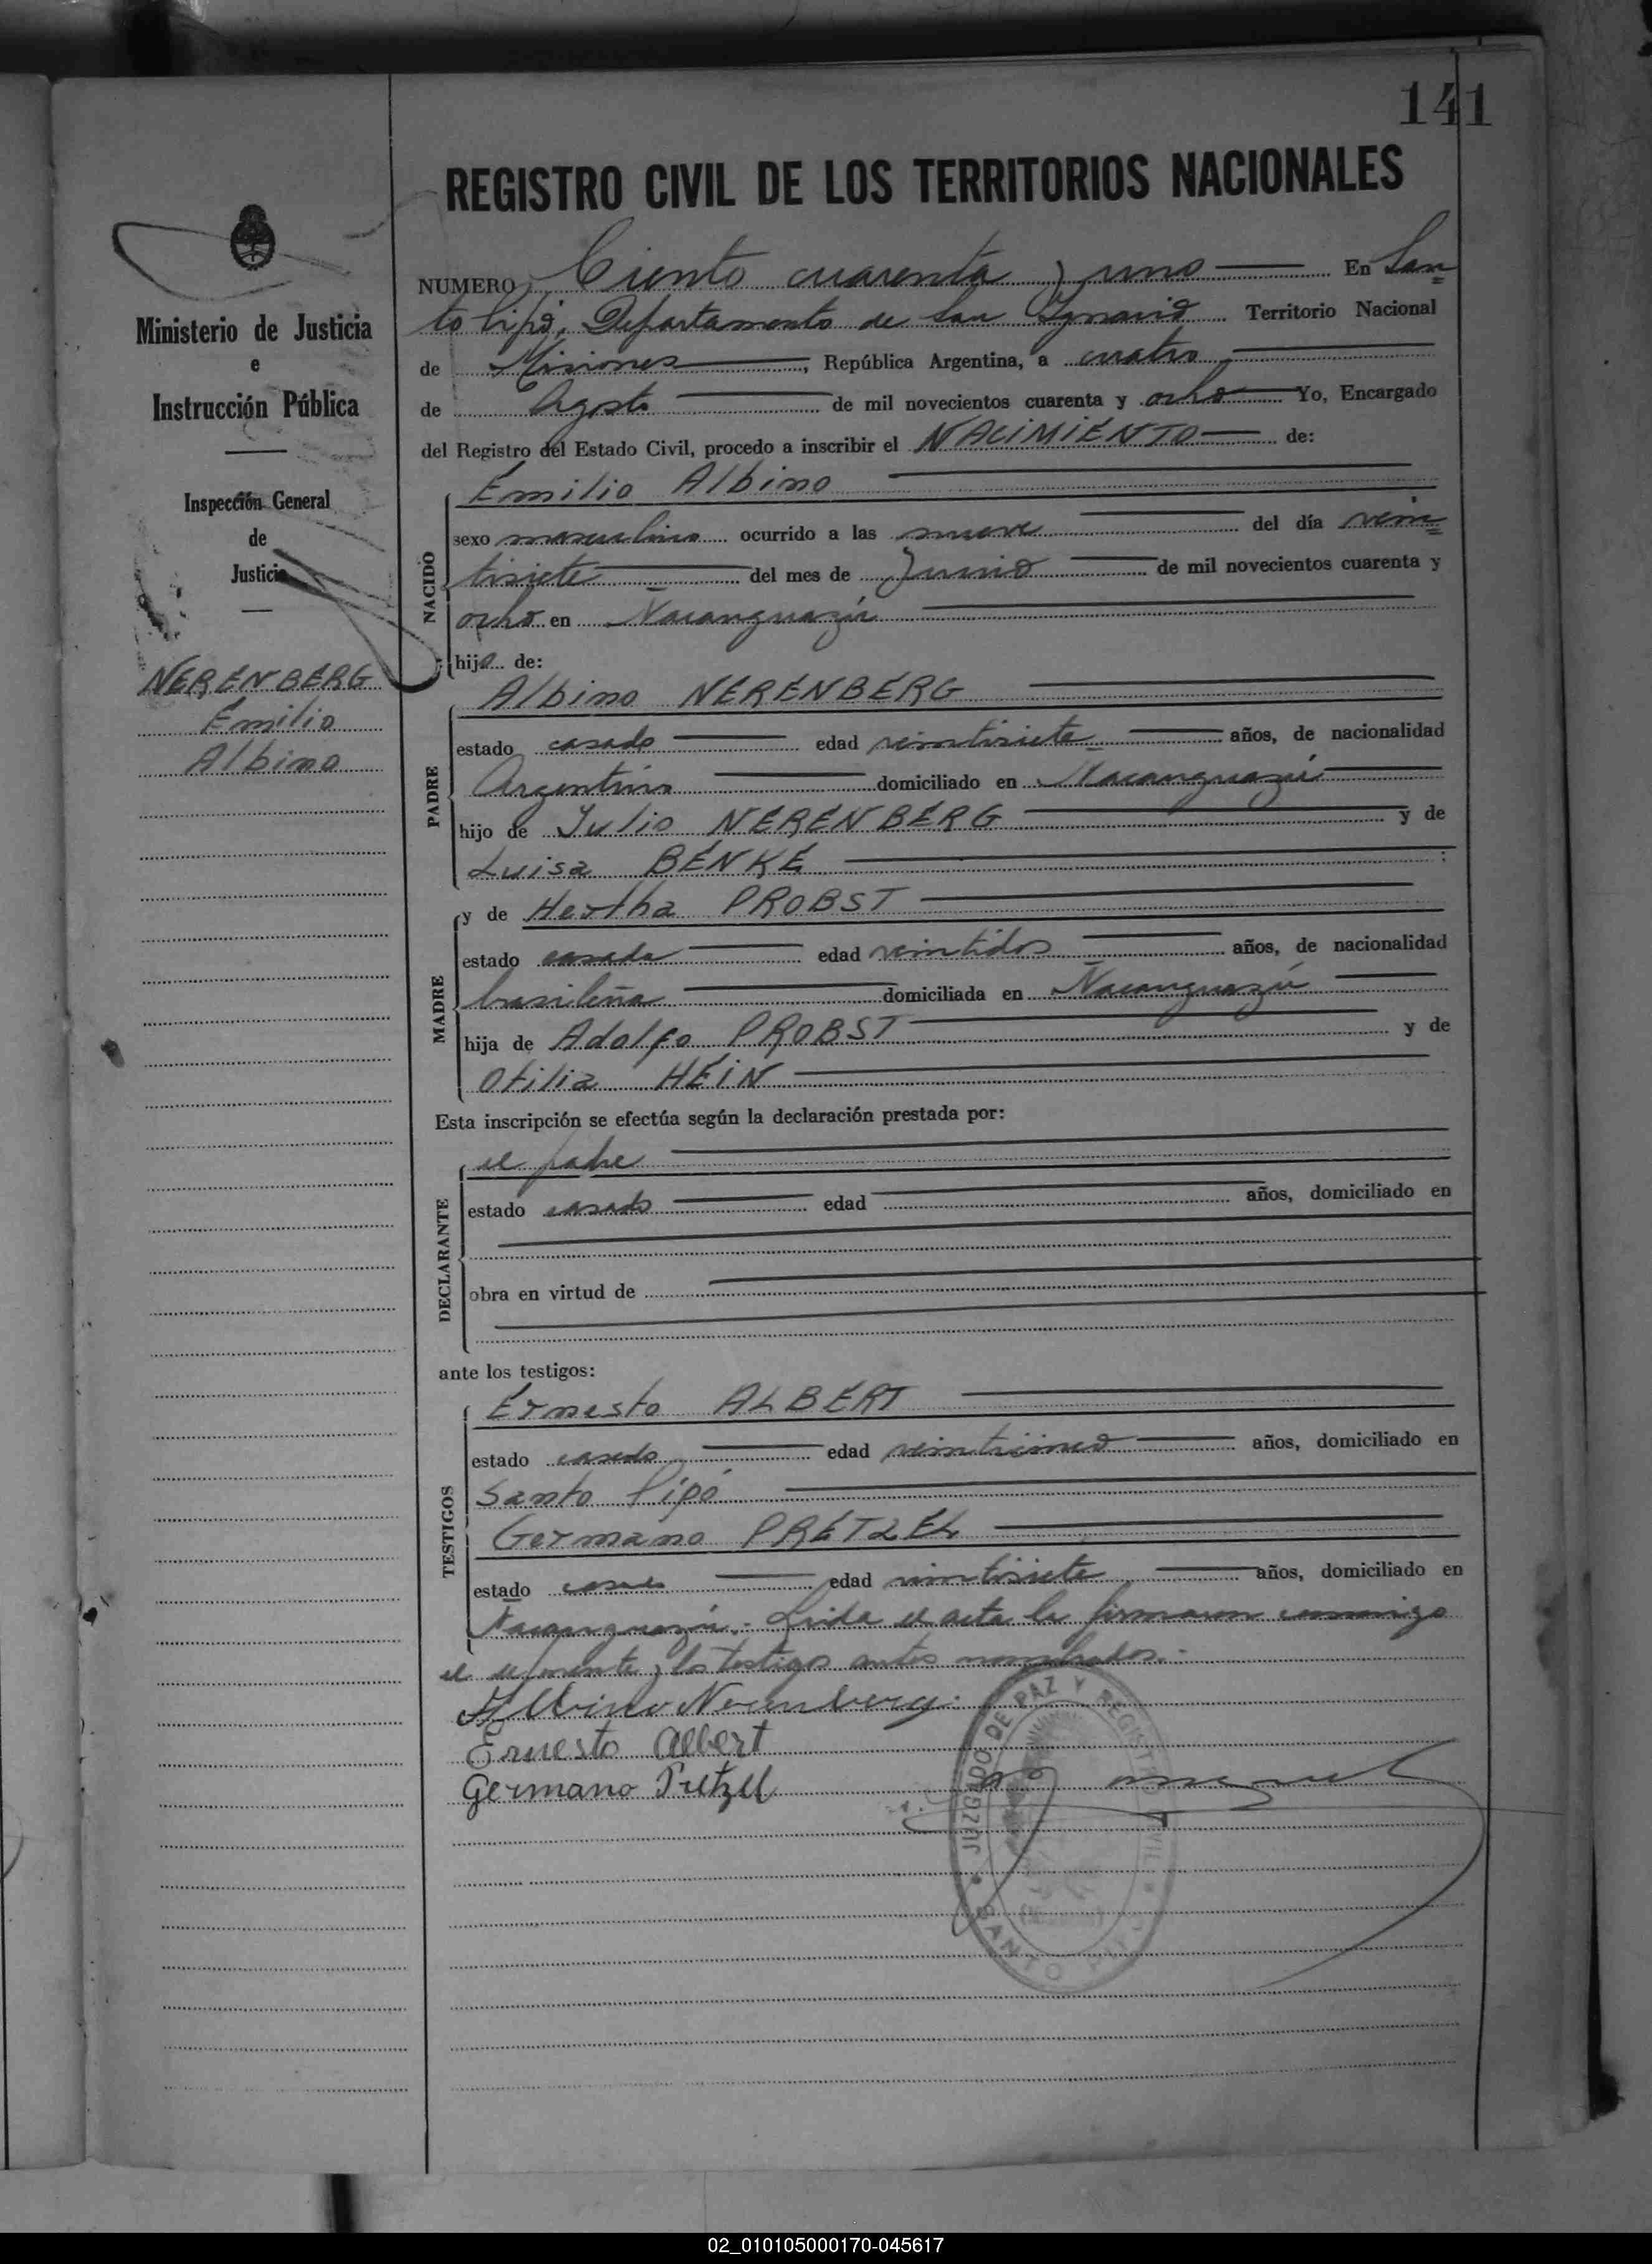 141
REGISTRO CIVIL DE LOS TERRITORIOS NACIONALES
Ministerio de Justicia
e
Instrucción Pública
Inspección General
de
Justicia
NERENBERG
Emilio
Albino
NUMERO Ciento cuarenta y uno En San
to Pipó, Departamento de San Ignacio Territorio Nacional
de Misiones, República Argentina, a cuatro
de Agosto de mil novecientos cuarenta y ocho Yo, Encargado
del Registro del Estado Civil, procedo a inscribir el NACIMIENTO de:
NACIDO
Emilio Albino
sexo masculino ocurrido a las nueve del día vein
tisiete del mes de Junio de mil novecientos cuarenta y
ocho en Ñacanguazú
hijo de:
PADRE
Albino NERENBERG
estado casado edad veintisiete años, de nacionalidad
Argentina domiciliado en Ñacanguazú
hijo de Julio NERENBERG y de
Luisa BENKE :
MADRE
y de Hertha PROBST
estado casada edad veintidos años, de nacionalidad
brasileña domiciliada en Ñacanguazú
hija de Adolfo PROBST y de
Otilia HEIN
Esta inscripción se efectúa según la declaración prestada por:
DECLARANTE
el padre
estado casado edad años, domiciliado en
obra en virtud de
ante los testigos:
TESTIGOS
Ernesto ALBERT
estado casado edad veinticinco años, domiciliado en
Santo Pipó
Germano PRETZEL
estado casado edad veintisiete años, domiciliado en
Ñacanguazú.- Leida el acta la firmaron conmigo
el exponente y los testigos antes nombrados.-
Albino Nerenberg.
Ernesto Albert
Germano Pretzel
JUZGADO DE PAZ Y REGISTRO CIVIL
SANTO PIPÓ
02_010105000170-045617